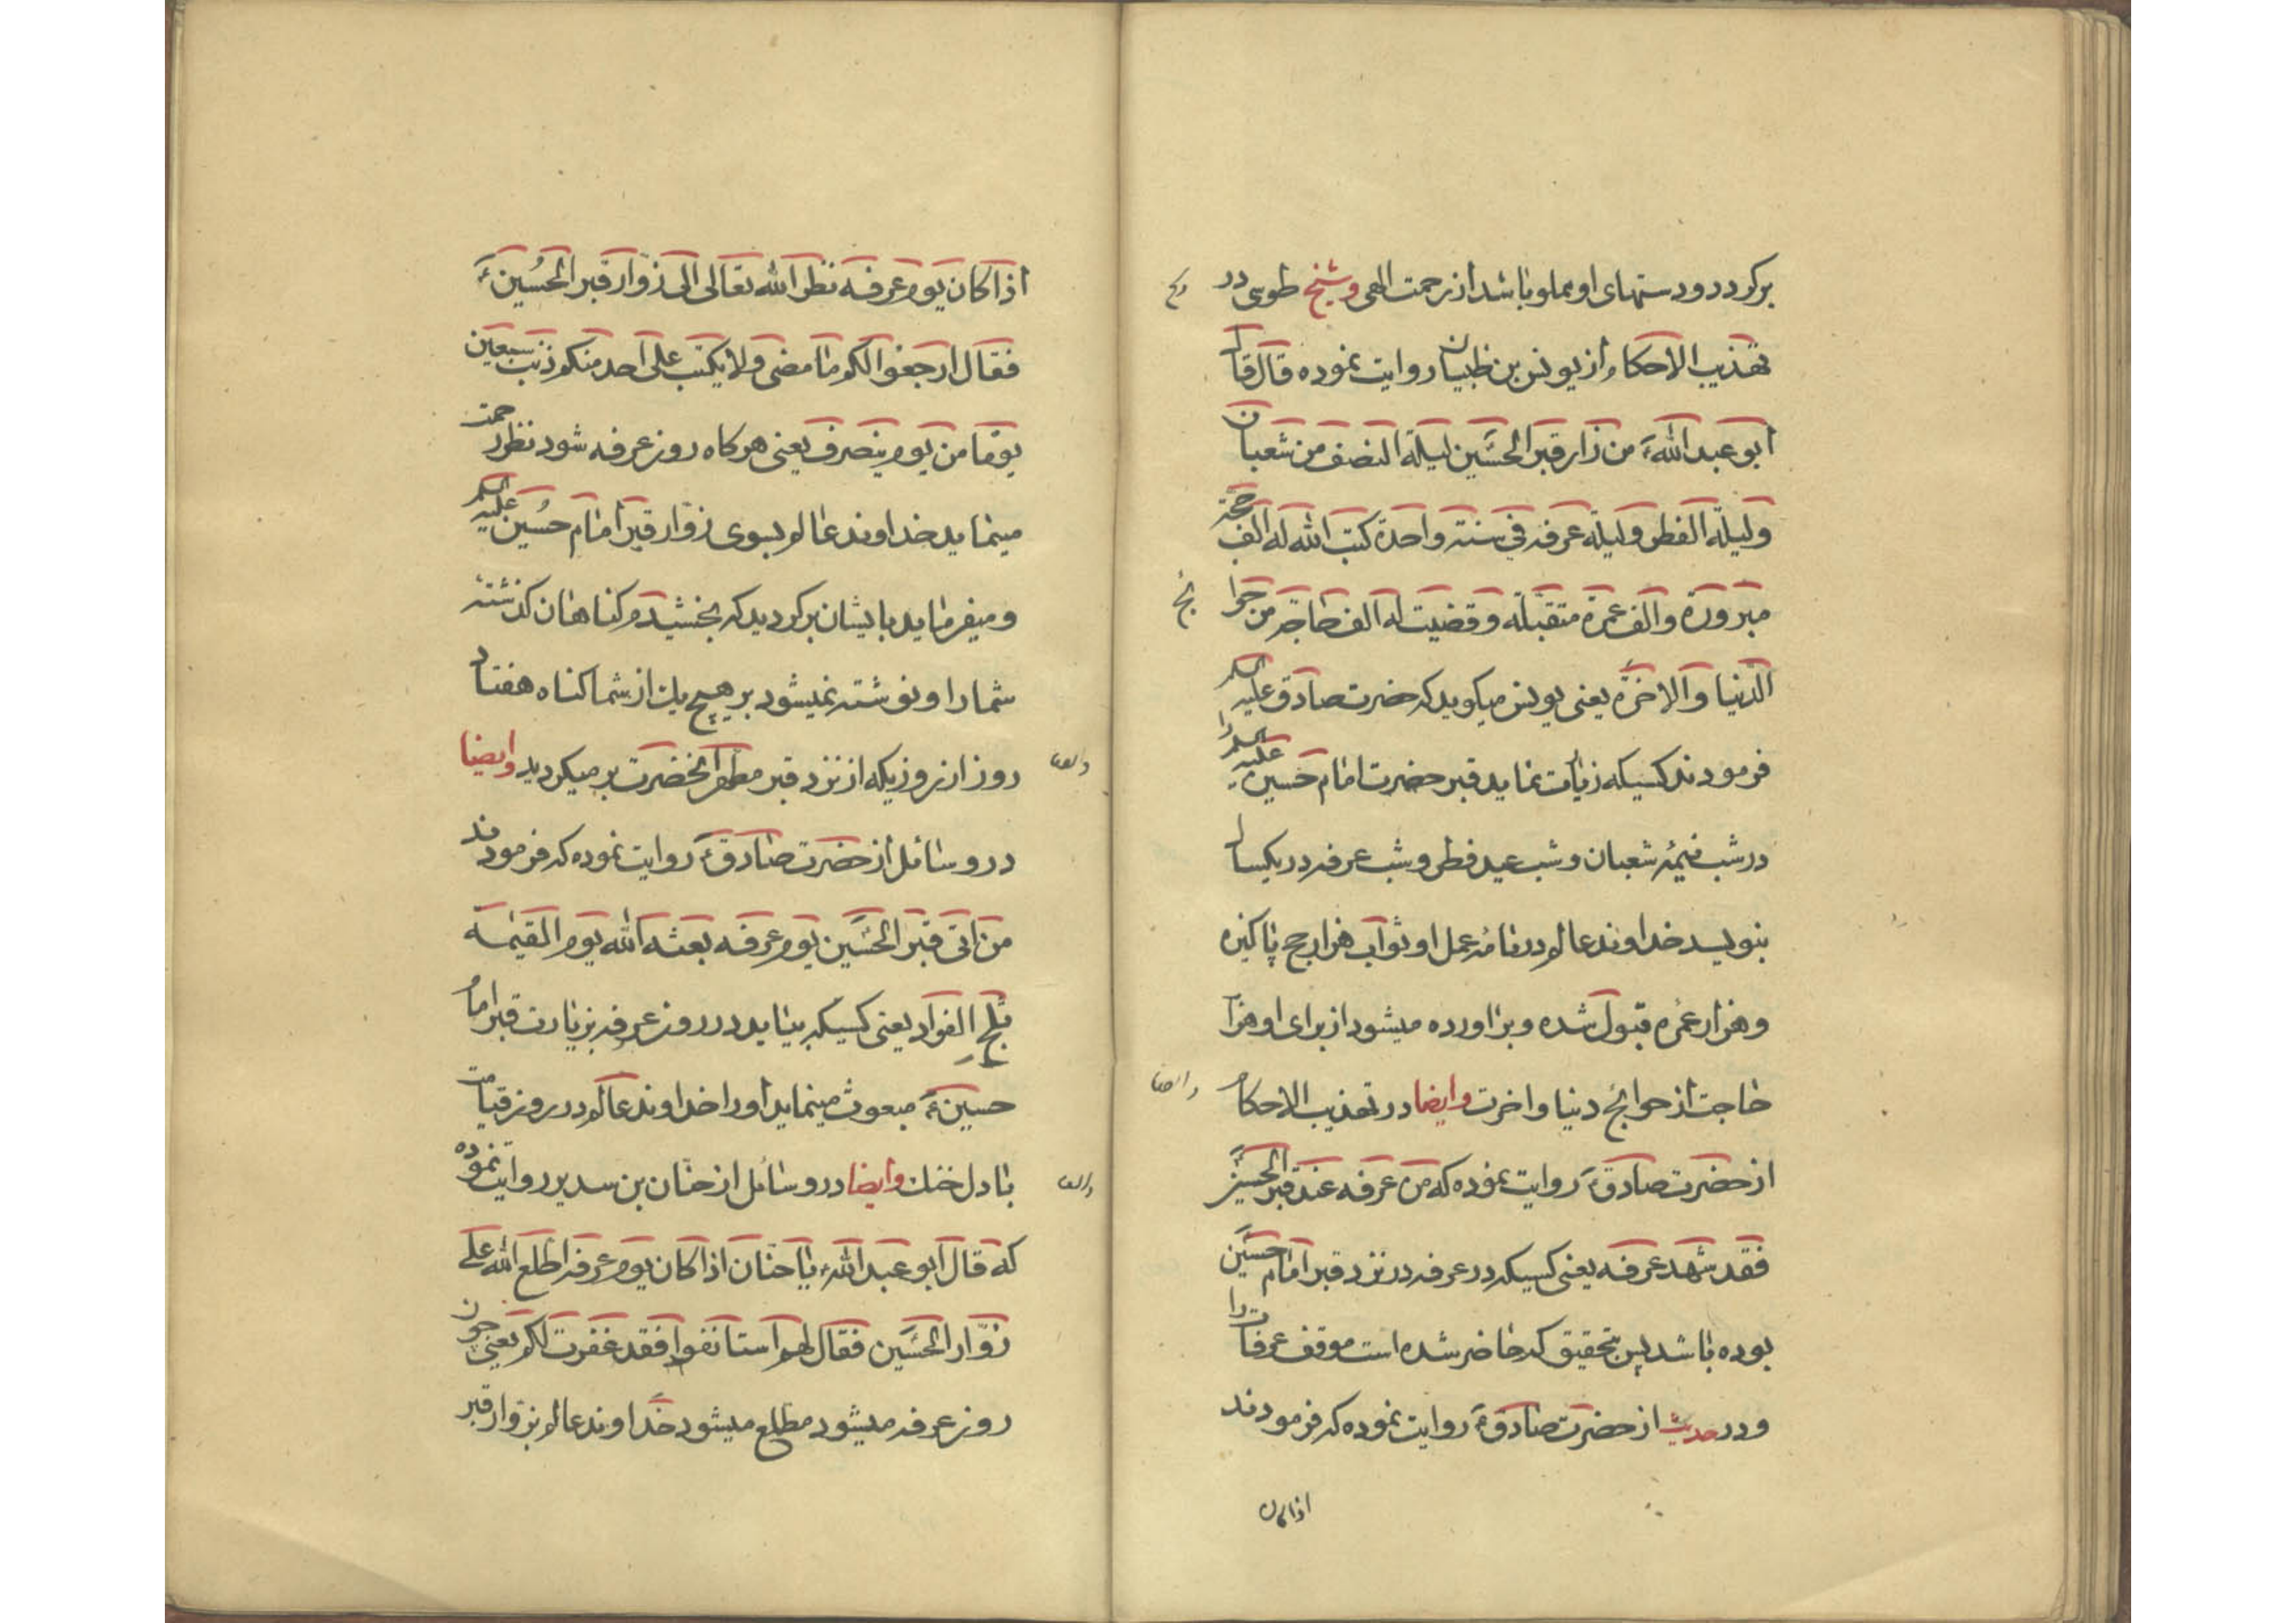 برکردد و دستهای او مملو باشد از رحمت الهی و شیخ طوسی در
تهذیب الاحکام از یونس بن ظبیان روایت نموده قال قال
ابو عبد اللهؑ من زار قبر الحسین لیلة النصف من شعبان
و لیلة الفطر و لیلة عرفه فی سنة واحدة کتب الله له الف حجة
مبرورة و الف عمرة متقبّلة و قضیت له الف حاجة من حوائج
الدنیا و الاخرة یعنی یونس میکوید که حضرت صادق علیه السلم
فرمودند کسیکه زیارت نماید قبر حضرت امام حسین علیه السلم را
در شب نیمهٔ شعبان و شب عید فطر و شب عرفه در یکسال
بنویسد خداوند عالم در نامهٔ عمل او ثواب هزار حج پاکیزه
و هزار عمره قبول شده و براورده میشود از برای او هزار
حاجت از حوائج دنیا و اخرت و ایضا در تهذیب الاحکام
از حضرت صادقؑ روایت نموده که من عرفه عند قبر الحسین
فقد شهد عرفه یعنی کسیکه در عرفه در نزد قبر امام حسین
بوده باشد پس بتحقیق که حاضر شده است موقف عرفات را
و در حدیث از حضرت صادقؑ روایت نموده که فرمودند
اذا کان
اذا کان یوم عرفه نظر الله تعالی الی زوّار قبر الحُسینؑ
فقال ارجعوا لکم ما مضی و لا یکتب علی احد منکم ذنب سبعین
یومًا من یوم ینصرف یعنی هرکاه روز عرفه شود نظر رحمت
مینماید خداوند عالم بسوی زوّار قبر امام حُسین علیه السلم
و میفرماید بایشان برکردید که بخشیدم کناهان کذشتهٔ
شما را و نوشته نمیشود بر هیچ یک از شما کناه هفتاد
روز از روزیکه از نزد قبر مطهر انحضرت برمیکردید و ایضا
در وسائل از حضرت صادقؑ روایت نموده که فرمودند
من اتی قبر الحسین یوم عرفه بعثه الله یوم القیمة
ثلج الفواد یعنی کسیکه بیاید در روز عرفه بزیارت قبر امام
حسینؑ مبعوث مینماید او را خداوند عالم در روز قیامت
با دل خنک و ایضا در وسائل از حنّان بن سدیر روایت نموده
که قال ابو عبد اللهؑ یا حنّان اذا کان یوم عرفه اطّلع الله علی
زوّار الحسین فقال لهم استانفوا فقد غفرت لکم یعنی چون
روز عرفه میشود مطلع میشود خداوند عالم بزوّار قبر